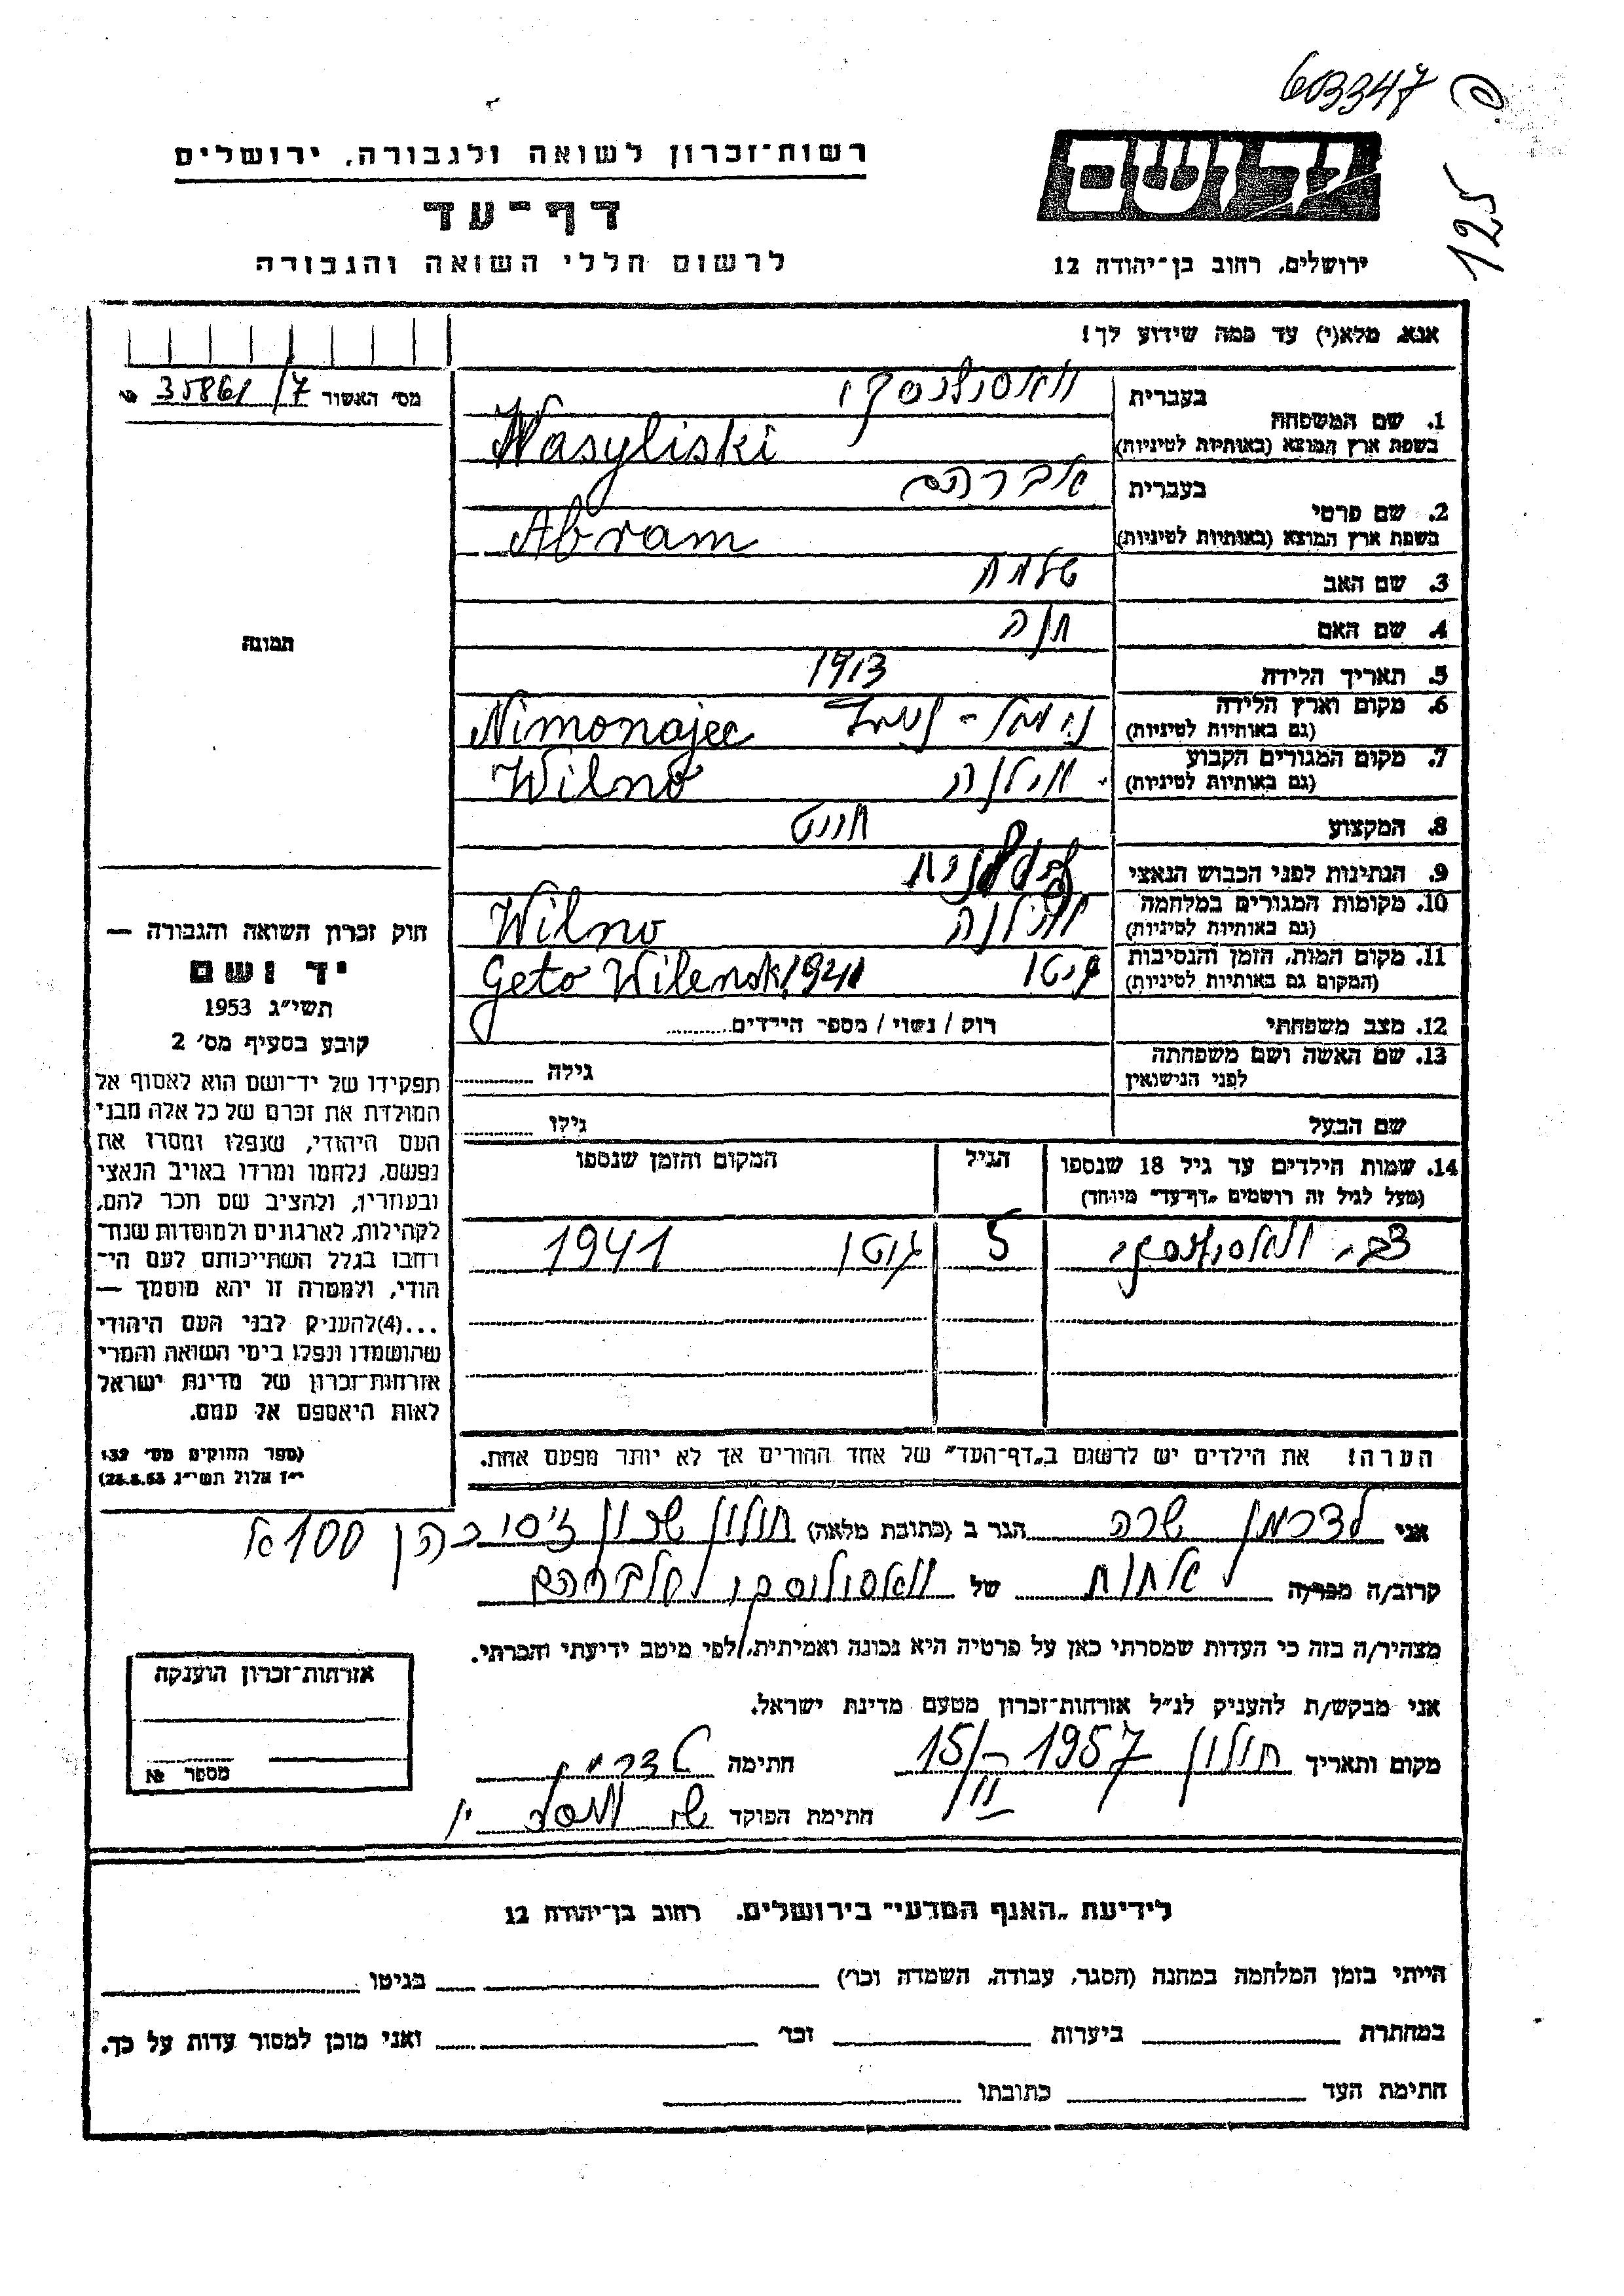 603347
125
יד ושם
רשות־זכרון לשואה ולגבורה, ירושלים
דף־עד
לרשום חללי השואה והגבורה
ירושלים, רחוב בן־יהודה 12
אנא, מלא(י) עד כמה שידוע לך!
מס׳ האשור 35861/7 №
1. שם המשפחה
בעברית וואסילסקי
בשפת ארץ המוצא (באותיות לטיניות) Wasyliski
2. שם פרטי
בעברית אברהם
בשפת ארץ המוצא (באותיות לטיניות) Abram
3. שם האב
4. שם האם חנה
5. תאריך הלידה 1913
6. מקום וארץ הלידה
(גם באותיות לטיניות) Nimonajec
7. מקום המגורים הקבוע וילנה
(גם באותיות לטיניות) Wilno
8. המקצוע חייט
9. הנתינות לפני הכבוש הנאצי
10. מקומות המגורים במלחמה ווילנה
(גם באותיות לטיניות) Wilno
11. מקום המות, הזמן והנסיבות גיטו
(המקום גם באותיות לטיניות) Geto Wilensk 1941
12. מצב משפחתי רוק / נשוי / מספר הילדים
13. שם האשה ושם משפחתה
לפני הנישואין גילה
שם הבעל גילו
14. שמות הילדים עד גיל 18 שנספו הגיל המקום והזמן שנספו
(מעל לגיל זה רושמים „דף־עד״ מיוחד)
צבי וואסילסקי 5 גיטו 1941
הערה! את הילדים יש לרשום ב„דף־העד״ של אחד ההורים אך לא יותר מפעם אחת.
תמונה
חוק זכרון השואה והגבורה —
יד ושם
תשי״ג 1953
קובע בסעיף מס׳ 2
תפקידו של יד־ושם הוא לאסוף אל
המולדת את זכרם של כל אלה מבני
העם היהודי, שנפלו ומסרו את
נפשם, נלחמו ומרדו באויב הנאצי
ובעוזריו, ולהציב שם וזכר להם,
לקהילות, לארגונים ולמוסדות שנח־
רחבו בגלל השתייכותם לעם הי־
הודי, ולמטרה זו יהא מוסמך —
...(4)להעניק לבני העם היהודי
שהושמדו ונפלו בימי השואה והמרי
אזרחות־זכרון של מדינת ישראל
לאות היאספם אל עמם.
(ספר החוקים מס׳ 132
י״ז אלול תשי״ג 28.8.53)
אני לדרמן שרה הגר ב (כתובת מלאה) חולון ג׳סי כהן 100
קרוב/ה מכר/ה אחות של וואסילסקי אברהם
מצהיר/ה בזה כי העדות שמסרתי כאן על פרטיה היא נכונה ואמיתית, לפי מיטב ידיעתי והכרתי.
אני מבקש/ת להעניק לנ״ל אזרחות־זכרון מטעם מדינת ישראל.
מקום ותאריך חולון 15/VI - 1957 חתימה לדרמן
חתימת הפוקד
אזרחות־זכרון הוענקה
מספר №
לידיעת „האגף המדעי״ בירושלים, רחוב בן־יהודה 12
הייתי בזמן המלחמה במחנה (הסגר, עבודה, השמדה וכו׳) בגיטו
במחתרת ביערות וכו׳ ואני מוכן למסור עדות על כך.
חתימת העד כתובתו